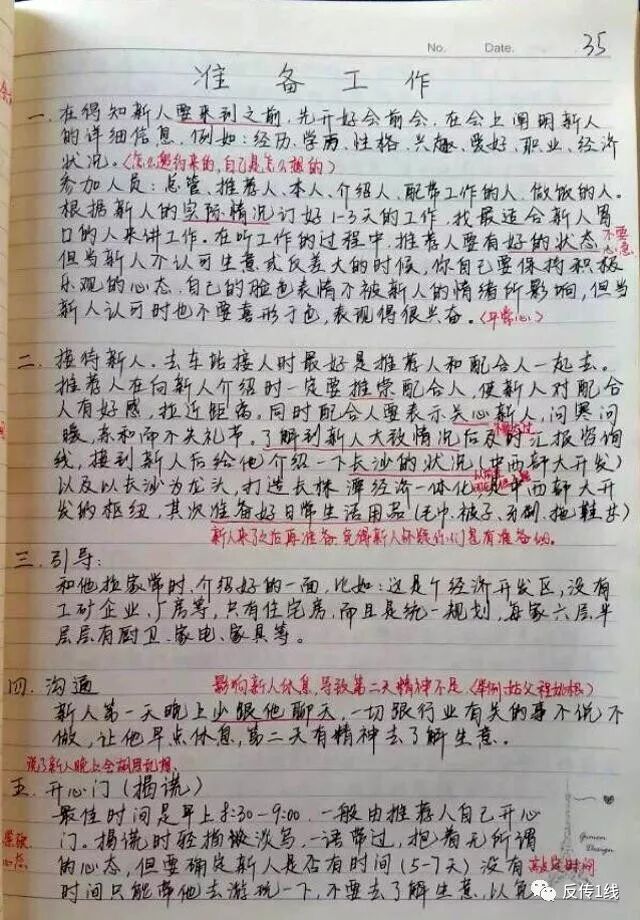 No. Date. 35
准 备 工 作
一. 在得知新人要来到之前, 先开好会前会, 在会上阐明新人
的详细信息. 例如: 经历、学历、性格、兴趣、爱好、职业、经济
状况。(怎么邀约来的, 自己是怎么想的)
参加人员: 总管、推荐人、本人、介绍人、配带工作的人. 做饭的人。
根据新人的实际情况订好1-3天的工作, 找最适合新人胃
口的人来讲工作。在听工作的过程中, 推荐人要有好的状态 不要
心急
但当新人不认可生意或反差大的时候, 你自己要保持积极
乐观的心态. 自己的脸色表情不被新人的情绪所影响, 但当
新人认可时也不要喜形于色, 表现得很兴奋。(平常心)
二. 接待新人. 去车站接人时最好是推荐人和配合人一起去。
推荐人在向新人介绍时一定要推崇配合人, 使新人对配合
人有好感, 拉近距离。同时配合人要表示关心新人, 问寒问
暖, 亲和而不失礼节。了解到新人大致情况后及时汇报咨询
线, 接到新人后给他介绍一下长沙的状况(中西部大开发)
以及以长沙为龙头, 打造长株潭经济一体化是中西部大开
发的枢纽, 其次准备好日常生活用品(毛巾. 被子. 牙刷. 拖鞋等)
新人来了之后再准备. 免得新人怀疑你们是有准备的。
三. 引导:
和他拉家常时. 介绍好的一面, 比如: 这是个经济开发区, 没有
工矿企业、厂房等, 只有住宅房. 而且是统一规划, 每家六层半
层层有厨卫. 家电、家具等。
四. 沟通 影响新人休息, 导致第二天精神不足(举例
新人第一天晚上少跟他聊天, 一切跟行业有关的事不说不
做, 让他早点休息, 第二天有精神去了解生意。
说了新人晚上会胡思乱想.
五. 开心门(揭谎)
最佳时间是早上8:30-9:00. 一般由推荐人自己开心
门。揭谎时轻描淡写, 一语带过, 抱着无所谓
的心态, 但要确定新人是否有时间(5-7天) 没有
时间只能带他去游玩一下, 不要去了解生意, 以免
反传1线